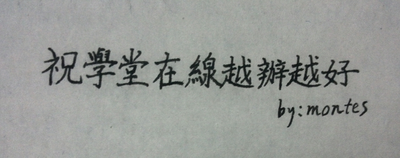 祝學堂在線越辦越好
by: montes